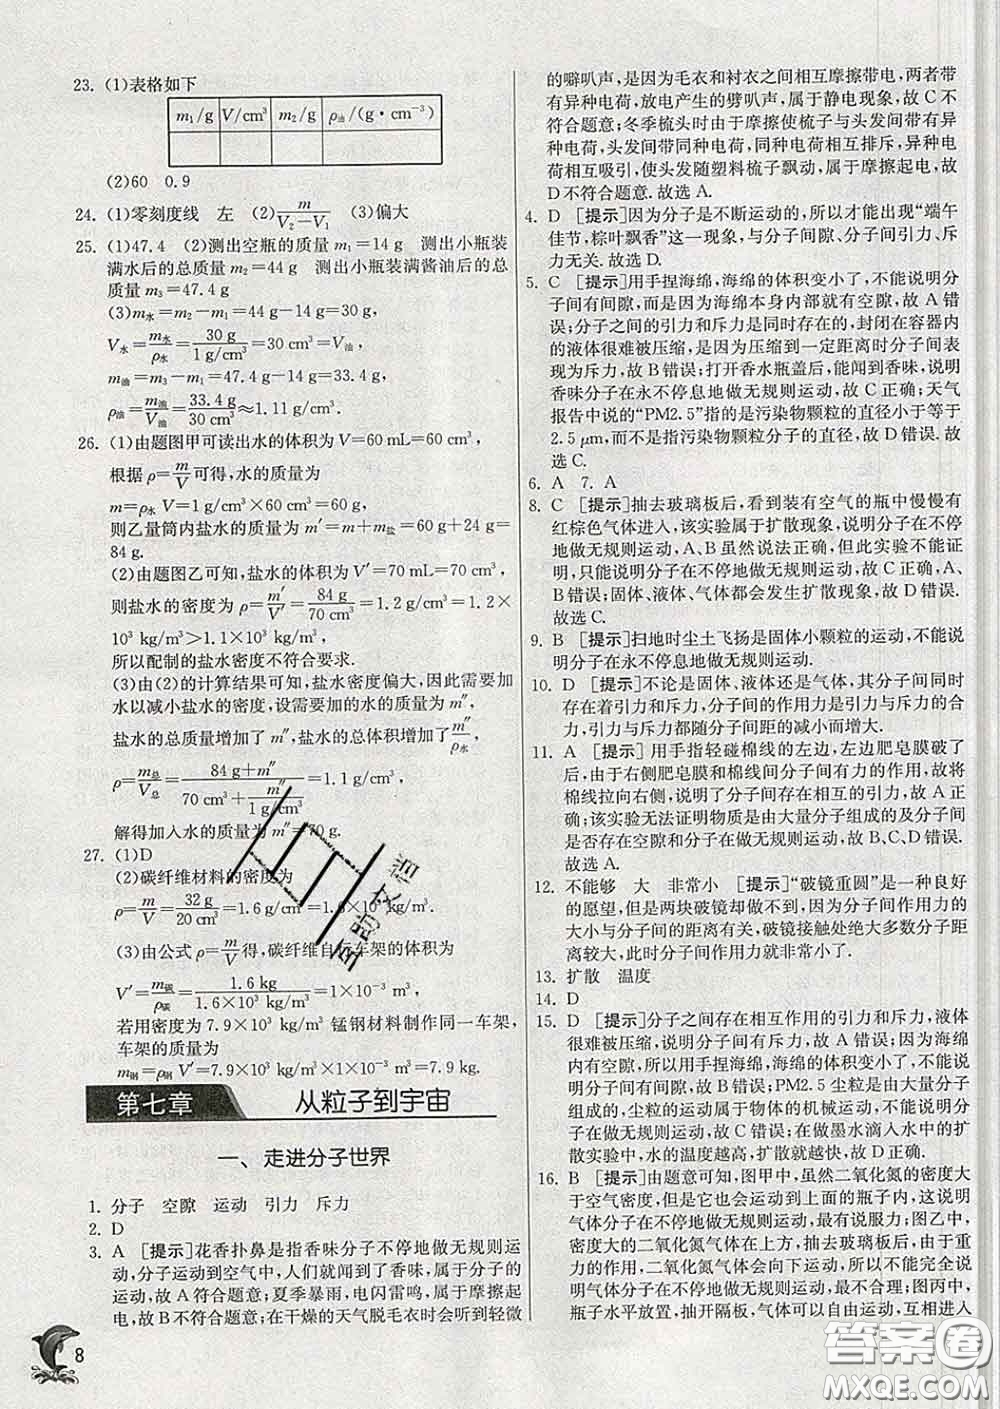 23. (1)表格如下
m₁/g V/cm³ m₂/g ρ油/(g·cm⁻³)
(2)60 0.9
24. (1)零刻度线 左 (2)m/(V₂−V₁) (3)偏大
25. (1)47.4 (2)测出空瓶的质量 m₁=14 g 测出小瓶装
满水后的总质量 m₂=44 g 测出小瓶装满酱油后的总
质量 m₃=47.4 g
(3)m水=m₂−m₁=44 g−14 g=30 g,
V水=m水/ρ水=30 g/(1 g/cm³)=30 cm³=V油,
m油=m₃−m₁=47.4 g−14 g=33.4 g,
ρ油=m油/V油=33.4 g/30 cm³≈1.11 g/cm³.
26. (1)由题图甲可读出水的体积为 V=60 mL=60 cm³,
根据 ρ=m/V 可得,水的质量为
m=ρ水 V=1 g/cm³×60 cm³=60 g,
则乙量筒内盐水的质量为 m′=m+m盐=60 g+24 g=
84 g.
(2)由题图乙可知,盐水的体积为 V′=70 mL=70 cm³,
则盐水的密度为 ρ=m′/V′=84 g/70 cm³=1.2 g/cm³=1.2×
10³ kg/m³>1.1×10³ kg/m³,
所以配制的盐水密度不符合要求.
(3)由(2)的计算结果可知,盐水密度偏大,因此需要加
水以减小盐水的密度,设需要加的水的质量为 m″,
盐水的总质量增加了 m″,盐水的总体积增加了 m″/ρ水,
ρ=m总/V总=(84 g+m″)/(70 cm³+m″/(1 g/cm³))=1.1 g/cm³,
解得加入水的质量为 m″=70 g.
27. (1)D
(2)碳纤维材料的密度为
ρ=m/V=32 g/20 cm³=1.6 g/cm³=1.6×10³ kg/m³.
(3)由公式 ρ=m/V 得,碳纤维自行车架的体积为
V′=m碳/ρ碳=1.6 kg/(1.6×10³ kg/m³)=1×10⁻³ m³,
若用密度为 7.9×10³ kg/m³ 锰钢材料制作同一车架,
车架的质量为
m钢=ρ钢 V′=7.9×10³ kg/m³×1×10⁻³ m³=7.9 kg.
第七章 从粒子到宇宙
一、走进分子世界
1. 分子 空隙 运动 引力 斥力
2. D
3. A [提示]花香扑鼻是指香味分子不停地做无规则运
动,分子运动到空气中,人们就闻到了香味,属于分子运
动,故 A 符合题意;夏季暴雨,电闪雷鸣,属于摩擦起
电,故 B 不符合题意;在干燥的天气脱毛衣时会听到轻微
的噼叭声,是因为毛衣和衬衣之间相互摩擦带电,两者带
有异种电荷,放电产生的劈叭声,属于静电现象,故 C 不
符合题意;冬季梳头时由于摩擦使梳子与头发间带有异
种电荷,头发间带同种电荷,同种电荷相互排斥,异种电
荷相互吸引,使头发随塑料梳子飘动,属于摩擦起电,故
D 不符合题意.故选 A.
4. D [提示]因为分子是不断运动的,所以才能出现“端午
佳节,粽叶飘香”这一现象,与分子间隙、分子间引力、斥
力无关.故选 D.
5. C [提示]用手捏海绵,海绵的体积变小了,不能说明分
子间有间隙,而是因为海绵本身内部就有空隙,故 A 错
误;分子之间的引力和斥力是同时存在的,封闭在容器内
的液体很难被压缩,是因为压缩到一定距离时分子间
表现为斥力,故 B 错误;打开香水瓶盖后,能闻到香味,说明
香味分子在永不停息地做无规则运动,故 C 正确;天气
报告中说的“PM2.5”指的是污染物颗粒的直径小于等于
2.5 μm,而不是污染物颗粒分子的直径,故 D 错误.故
选 C.
6. A 7. A
8. C [提示]抽去玻璃板后,看到装有空气的瓶中慢慢有
红棕色气体进入,该实验属于扩散现象,说明分子在不停
地做无规则运动,A、B 虽然说法正确,但此实验不能证
明,故 A、B 错误;该实验说明分子在不停地做无规则运动,故 C 正确;固体、液体、气体都会发生扩散现象,故 D 错误.
故选 C.
9. B [提示]扫地时尘土飞扬是固体小颗粒的运动,不能说
明分子在永不停息地做无规则运动.
10. D [提示]不论是固体、液体还是气体,其分子间同时
存在着引力和斥力,分子间的作用力是引力与斥力的合
力,引力与斥力都随分子间距的减小而增大.
11. A [提示]用手指轻碰棉线的左边,左边肥皂膜破了
后,由于右侧肥皂膜和棉线间分子间有力的作用,因此将
棉线拉向右侧,说明了分子间存在相互的作用力,故 A 正
确;该实验无法证明物质是由大量分子组成的及分子间
是否存在空隙和分子在做无规则运动,故 B、C、D 错误.
故选 A.
12. 不能够 大 非常小 [提示]“破镜重圆”是一种良好
的愿望,但是两块破镜却做不到,是因为分子间作用力的
大小与分子间的距离有关,破镜接触处绝大多数分子距
离较大,此时分子间作用力就非常小了.
13. 扩散 温度
14. D
15. D [提示]分子之间存在相互作用的引力和斥力,液体
很难被压缩,说明分子间有斥力,故 A 错误;因为海
绵内有空隙,所以用手捏海绵,海绵的体积变小了,不能
说明分子间有间隙,故 B 错误;PM2.5 尘粒是由大量分
子组成的,尘粒的运动属于物体的机械运动,不属于分子
运动,故 C 错误;在做墨水滴入水中的
扩散实验中,水的温度越高,扩散就越快,故 D 正确.
16. B [提示]由题意可知:图甲中,虽然二氧化氮的密度大
于空气密度,但是它也会运动到上面的瓶子内,这说明
气体分子在不停地做无规则运动,最有说服力;图乙中,
密度大的二氧化氮气体在上方,抽去玻璃板后,由于重力
的影响,二氧化氮气体会向下运动,所以不能完全说
明气体分子在不停地做无规则运动,最不合理;图丙中,
瓶子水平放置,抽开隔板,气体可以自由运动,互相进入
8
答案圈
MXQE.COM